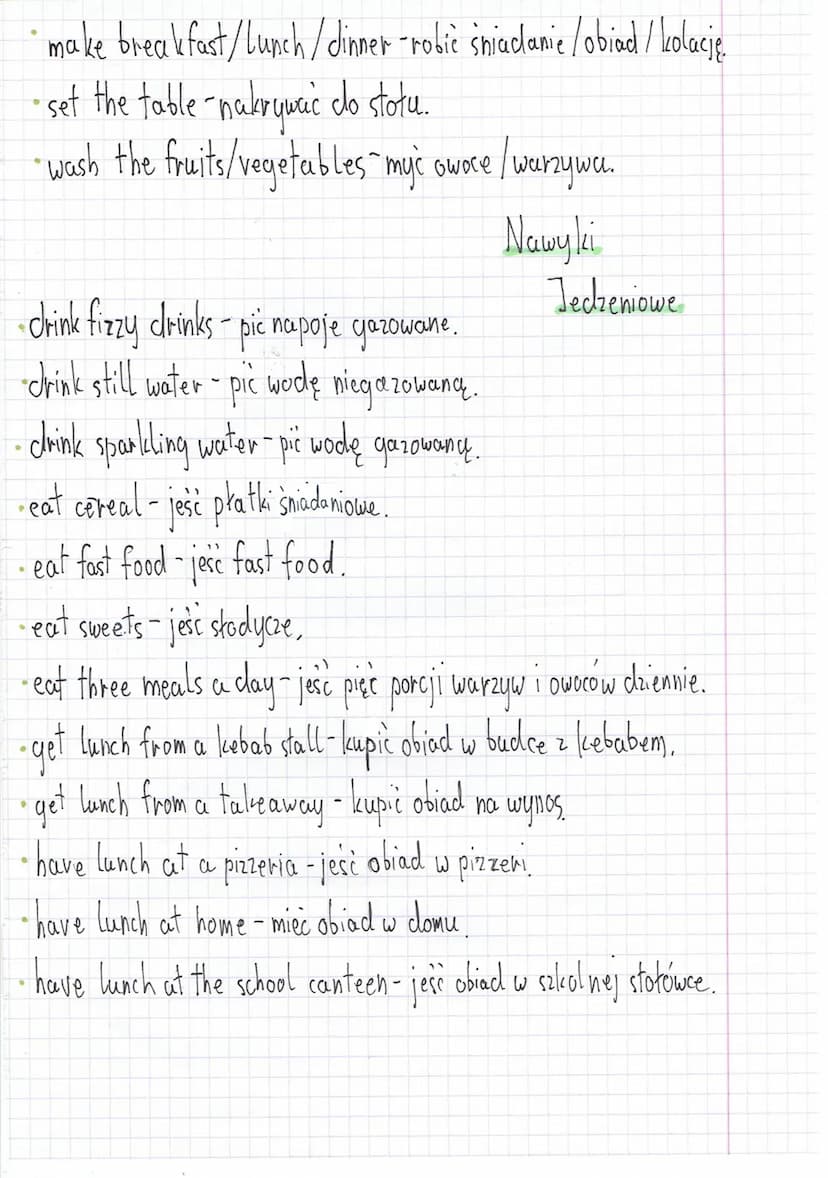 • make breakfast/lunch/dinner - robić śniadanie/obiad/kolację.
• set the table - nakrywać do stołu.
• wash the fruits/vegetables - myć owoce/warzywa.
Nawyki
Jedzeniowe
• drink fizzy drinks - pić napoje gazowane.
• drink still water - pić wodę niegazowaną.
• drink sparkling water - pić wodę gazowaną.
• eat cereal - jeść płatki śniadaniowe.
• eat fast food - jeść fast food.
• eat sweets - jeść słodycze,
• eat three meals a day - jeść pięć porcji warzyw i owoców dziennie.
• get lunch from a kebab stall - kupić obiad w budce z kebabem,
• get lunch from a takeaway - kupić obiad na wynos.
• have lunch at a pizzeria - jeść obiad w pizzeri.
• have lunch at home - mieć obiad w domu.
• have lunch at the school canteen - jeść obiad w szkolnej stołówce.